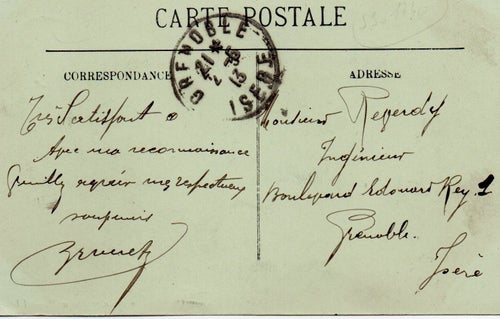 CARTE POSTALE
GRENOBLE
21 *
ISERE
13
CORRESPONDANCE
ADRESSE
Très Satisfait
Avec ma reconnaissance
Veuillez agréér mes respectueux
souvenirs
Monsieur Reperdy
Ingénieur
Boulevard Edouard Rey. 1
Grenoble.
Isère